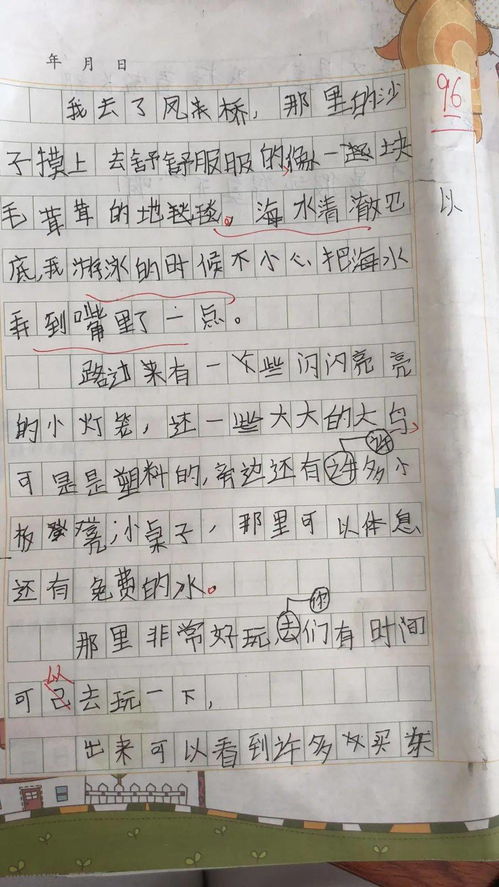 年 月 日
96
我去了凤来桥，那里的沙
子摸上去舒舒服服的像一块
毛茸茸的地毯。海水清澈见
以
底，我游泳的时候不小心把海水
弄到嘴里了一点。
路过来有一些闪闪亮亮
的小灯笼，还一些大大的大鸟，
许
可是是塑料的，旁边还有许多小
板凳小桌子，那里可以体息
还有免费的水。
你
那里非常好玩，去们有时间
以
可己去玩一下，
出来可以看到许多买东